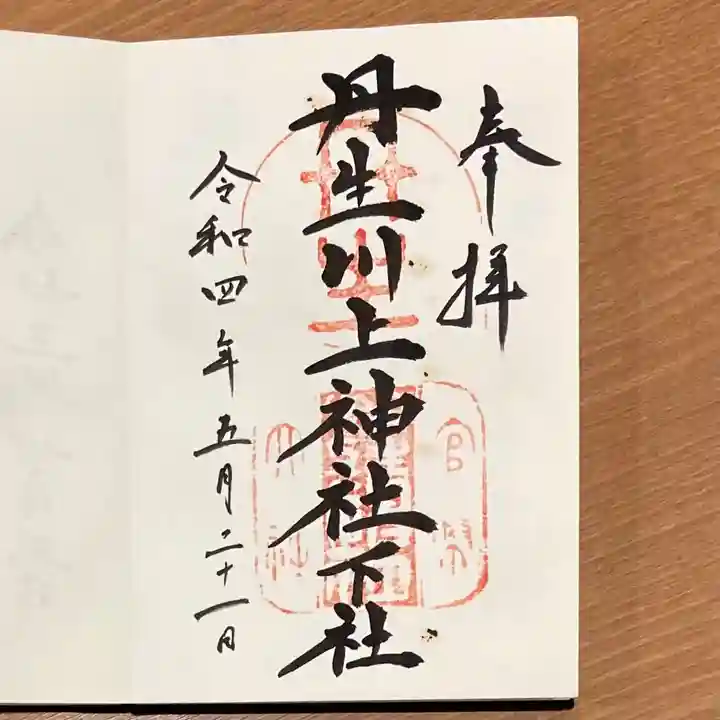 奉拝
丹生川上神社下社
令和四年五月二十一日
官幣
大社